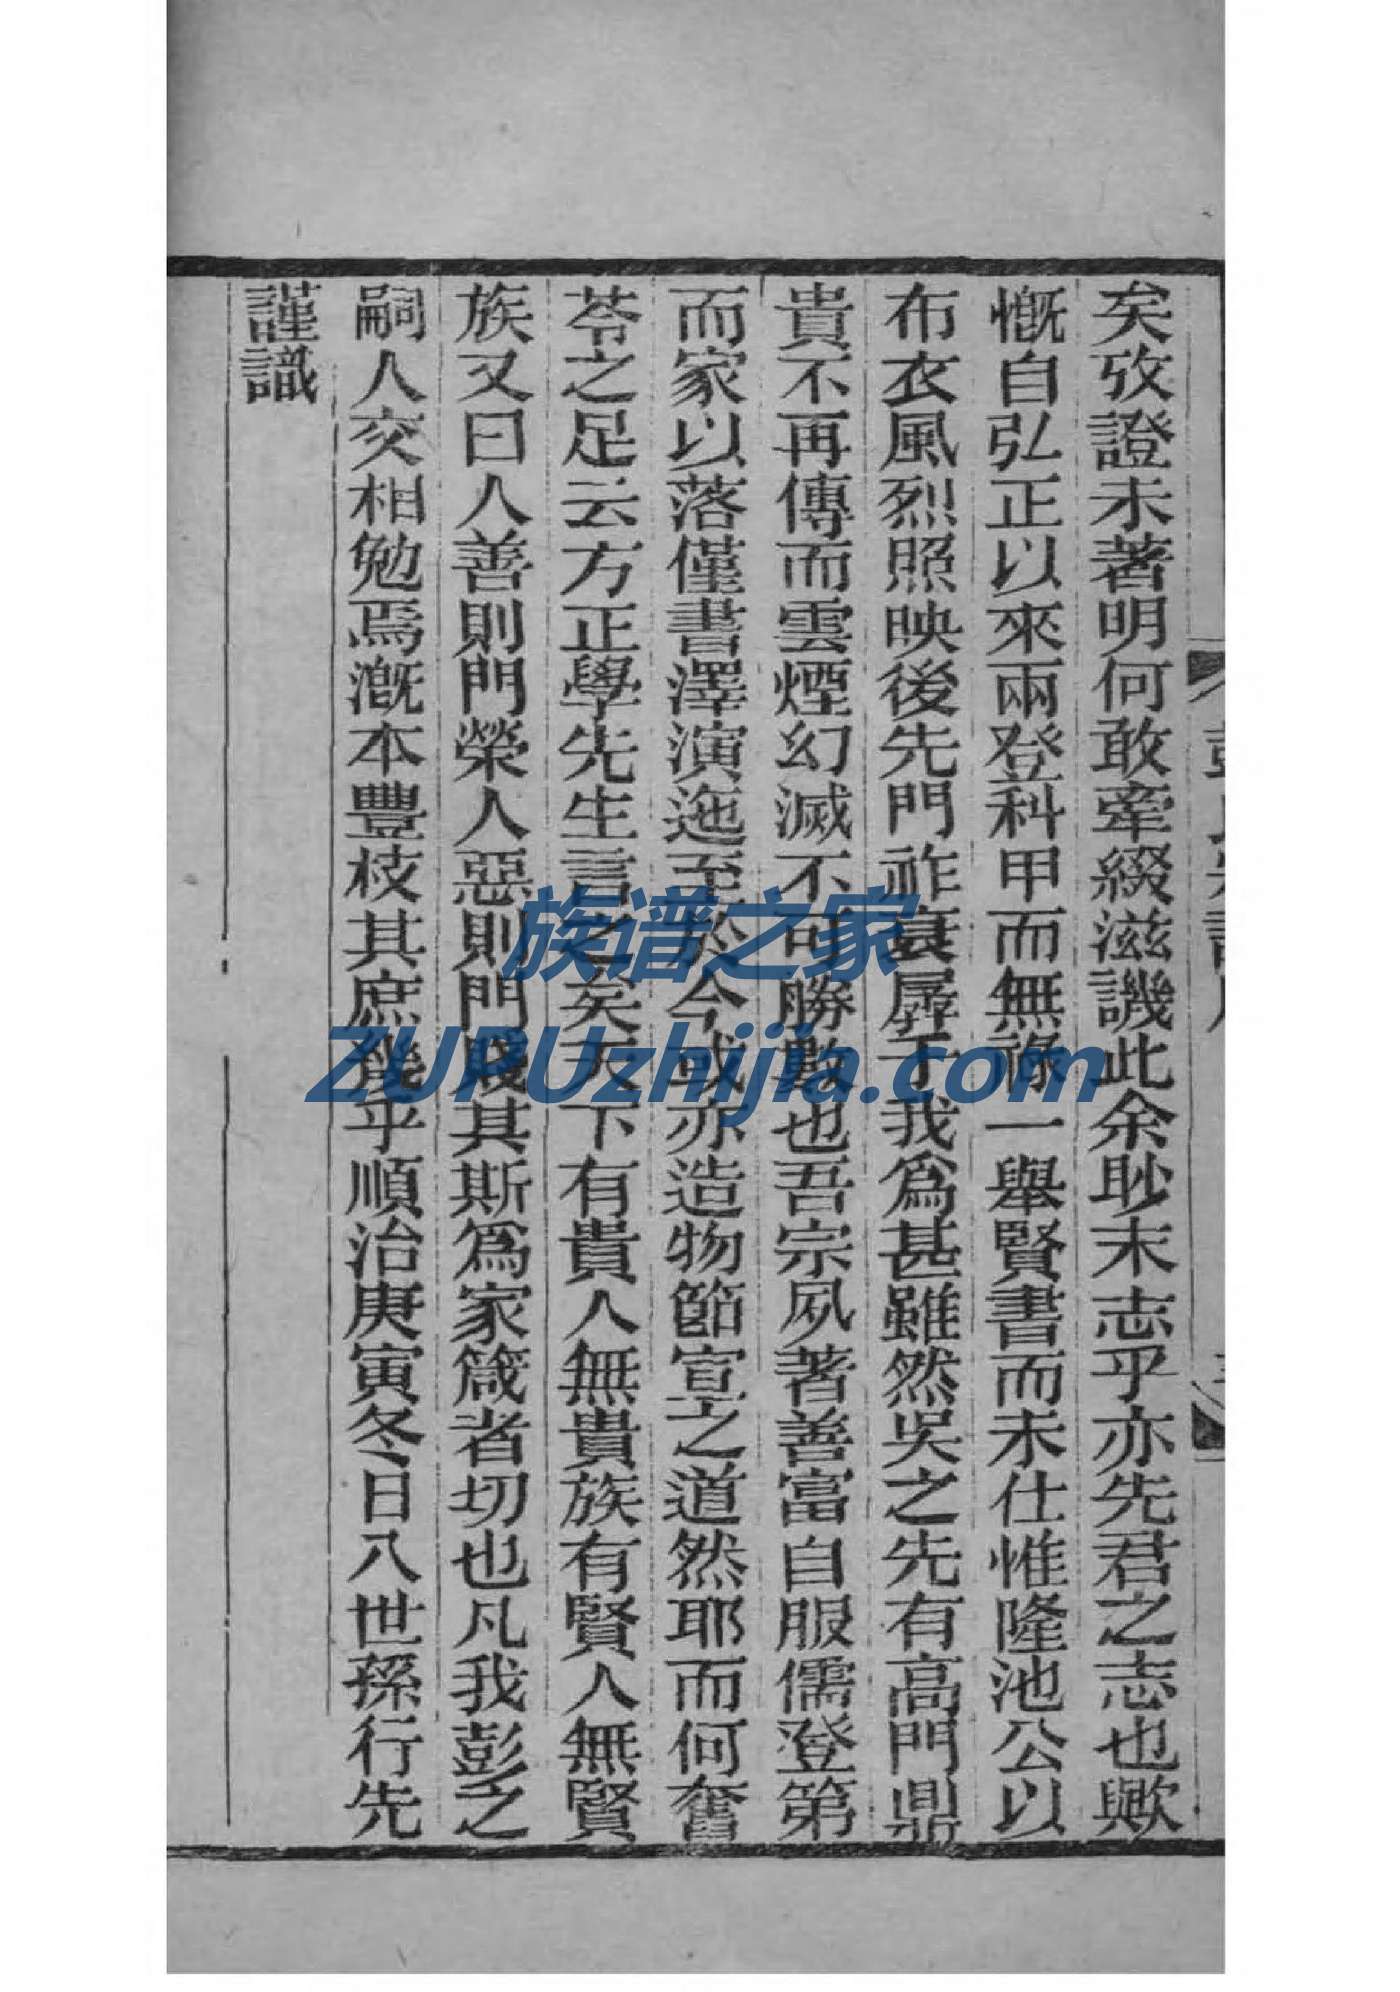 矣攷證未著明何敢牽綴滋譏此余眇末志乎亦先君之志也歟
慨自弘正以來兩登科甲而無祿一舉賢書而未仕惟隆池公以
布衣風烈照映後先門祚衰孱于我爲甚雖然吳之先有高門鼎
貴不再傳而雲煙幻滅不可勝數也吾宗夙著善富自服儒登第
而家以落僅書澤演迤至於今或亦造物節宣之道然耶而何奮
苓之足云方正學先生言之矣天下有貴人無貴族有賢人無賢
族又曰人善則門榮人惡則門賤其斯爲家箴者切也凡我彭之
嗣人交相勉焉漑本豐枝其庶幾乎順治庚寅冬日八世孫行先
謹識
族谱之家
ZUPUzhijia.com